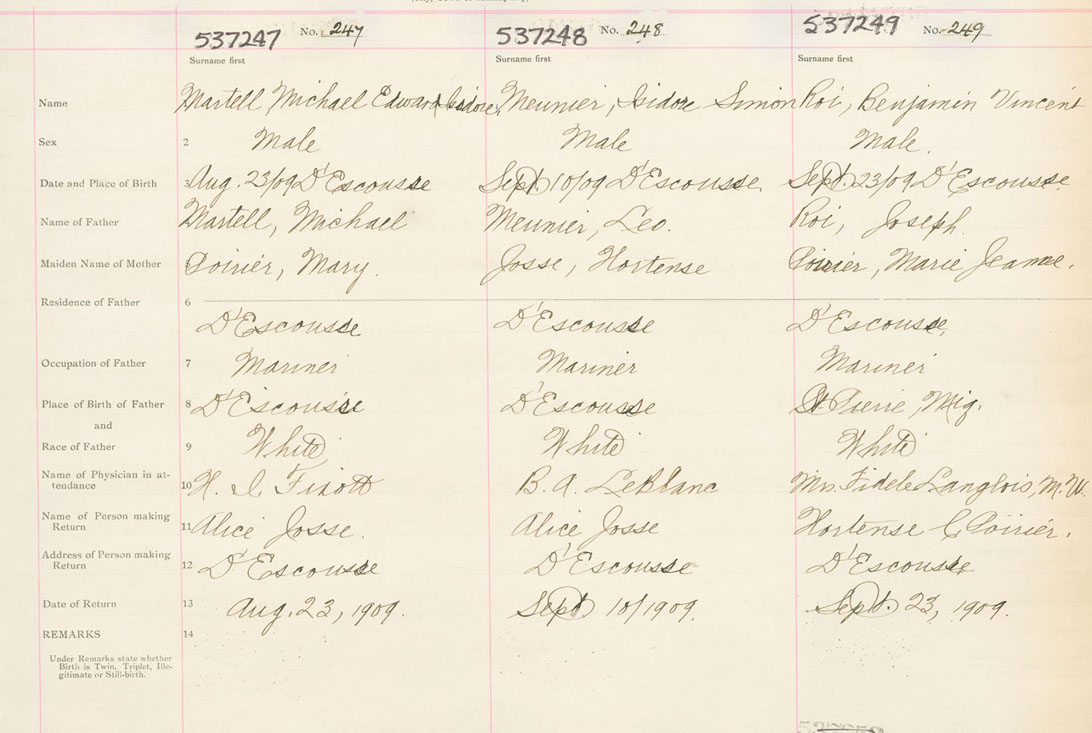 537247 No. 247 537248 No. 248 537249 No. 249
Surname first Surname first Surname first
Name Martell Michael Edward Isidore, Meunier, Isidore Simon Roi, Benjamin Vincent
Sex 2 Male Male Male.
Date and Place of Birth 3 Aug. 23/09 D'Escousse Sept. 10/09 D'Escousse. Sept. 23/09 D'Escousse
Name of Father Martell, Michael Meunier, Leo. Roi, Joseph.
Maiden Name of Mother Poirier, Mary. Josse, Hortense Poirier, Marie Jeanne.
Residence of Father 6
D'Escousse D'Escousse D'Escousse,
Occupation of Father 7 Mariner Mariner Mariner
Place of Birth of Father 8 D'Escousse D'Escousse St. Pierre, Miq.
and
Race of Father 9 White White White
Name of Physician in at-
tendance 10 H. I. Fixott B. A. LeBlanc Mrs. Fidele Langlois, M. W.
Name of Person making
Return 11 Alice Josse. Alice Josse Hortense C Poirier.
Address of Person making
Return 12 D'Escousse D'Escousse D'Escousse
Date of Return 13 Aug. 23, 1909. Sept 10/1909 Sept. 23, 1909.
REMARKS 14
Under Remarks state whether
Birth is Twin, Triplet, Ille-
gitimate or Still-birth.